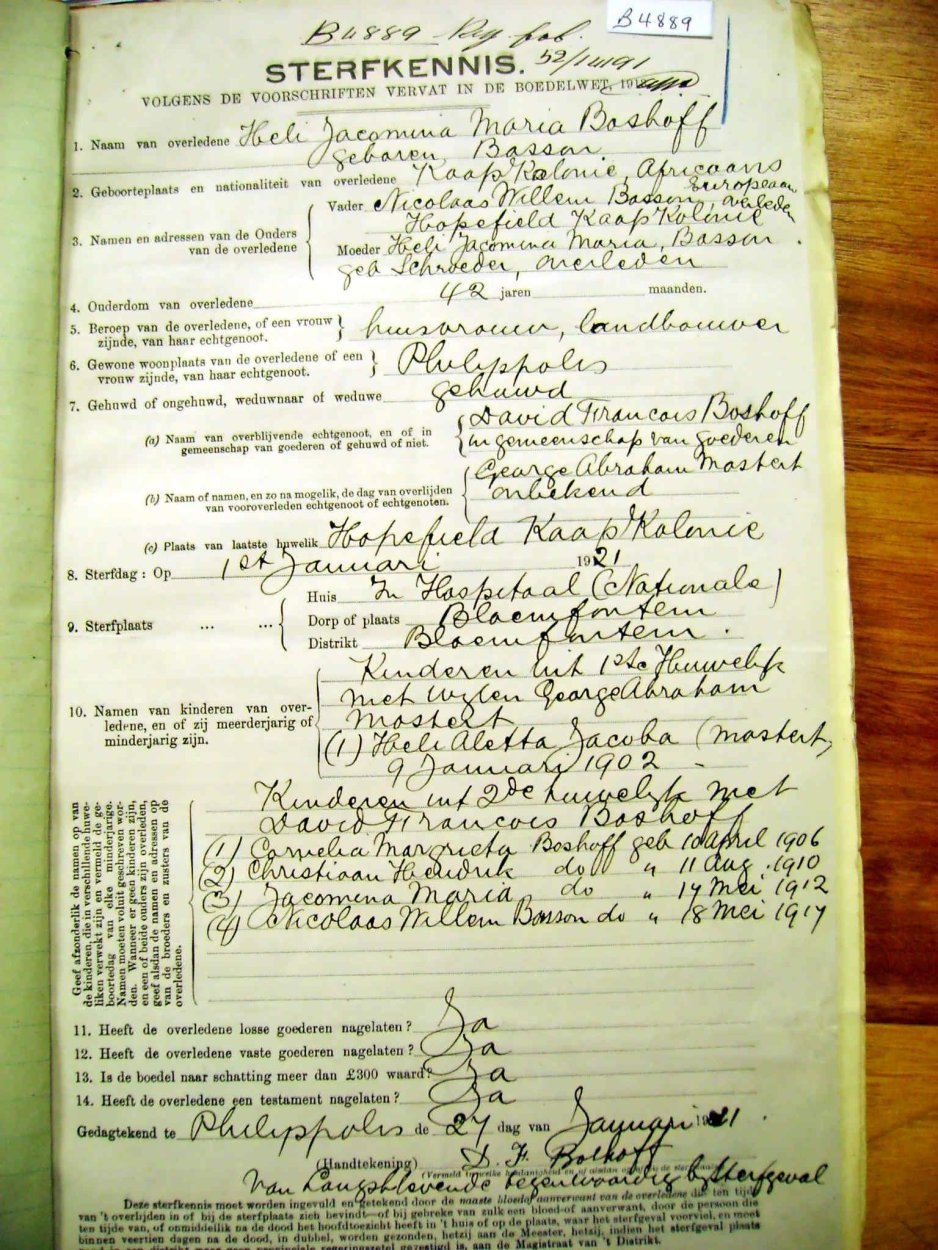 B4889
B4889 Reg fol.
52/1
STERFKENNIS.
VOLGENS DE VOORSCHRIFTEN VERVAT IN DE BOEDELWET, 19
1. Naam van overledene Heli Jacomina Maria Boshoff
geboren Basson
2. Geboorteplaats en nationaliteit van overledene Kaap Kolonie, Africaans
Europeaan
3. Namen en adressen van de Ouders van de overledene
Vader Nicolaas Willem Basson, overleden
Hopefield Kaap Kolonie
Moeder Heli Jacomina Maria, Basson
geb Schroeder, overleden
4. Ouderdom van overledene 42 jaren maanden.
5. Beroep van de overledene, of een vrouw zijnde, van haar echtgenoot. huisvrouw, landbouwer
6. Gewone woonplaats van de overledene of een vrouw zijnde, van haar echtgenoot. Philippolis
7. Gehuwd of ongehuwd, weduwnaar of weduwe gehuwd
(a) Naam van overblijvende echtgenoot, en of in gemeenschap van goederen of gehuwd of niet.
David Francois Boshoff
in gemeenschap van goederen
(b) Naam of namen, en zo na mogelik, de dag van overlijden van vooroverleden echtgenoot of echtgenoten.
George Abraham Mostert
onbekend
(c) Plaats van laatste huwelik Hopefield Kaap Kolonie
8. Sterfdag: Op 1st Januari 1921
9. Sterfplaats ... ...
Huis In Hospitaal (Nationale)
Dorp of plaats Bloemfontein
Distrikt Bloemfontein.
10. Namen van kinderen van overledene, en of zij meerderjarig of minderjarig zijn.
Kinderen uit 1ste Huwelijk
met wylen George Abraham
Mostert
(1) Heli Aletta Jacoba (Mostert)
9 Januari 1902 -
Kinderen uit 2de huwelijk met
David Francois Boshoff
(1) Cornelia Margrieta Boshoff geb 10 April 1906
(2) Christiaan Hendrik do " 11 Aug. 1910
(3) Jacomina Maria do " 14 Mei 1912
(4) Nicolaas Willem Basson do " 18 Mei 1917
Geef afzonderlik de namen op van
de kinderen, die in verschillende huwe-
liken verwekt zijn en vermeld de ge-
boortedag van elke minderjarige.
Namen moeten voluit geschreven wor-
den. Wanneer er geen kinderen zijn,
en een of beide ouders zijn overleden,
geef alsdan de namen en adressen op
van de broeders en zusters van de
overledene.
11. Heeft de overledene losse goederen nagelaten? Ja
12. Heeft de overledene vaste goederen nagelaten? Ja
13. Is de boedel naar schatting meer dan £300 waard? Ja
14. Heeft de overledene een testament nagelaten? Ja
Gedagtekend te Philippolis de 27 dag van Januari 1921.
(Handtekening) D. F. Boshoff
Van Langstlevende tegenwoordig by sterfgeval
Deze sterfkennis moet worden ingevuld en getekend door de naaste bloedaanverwant van de overledene die ten tijde
van 't overlijden in of bij de sterfplaats zich bevindt—of bij gebreke van zulk een bloed-of aanverwant, door de persoon die
ten tijde van, of onmiddelik na de dood het hoofdtoezicht heeft in 't huis of op de plaats, waar het sterfgeval voorviel, en moet
binnen veertien dagen na de dood, in dubbel, worden gezonden, hetzij aan de Meester, hetzij, indien het sterfgeval plaats
aan de Magistraat van 't Distrikt.